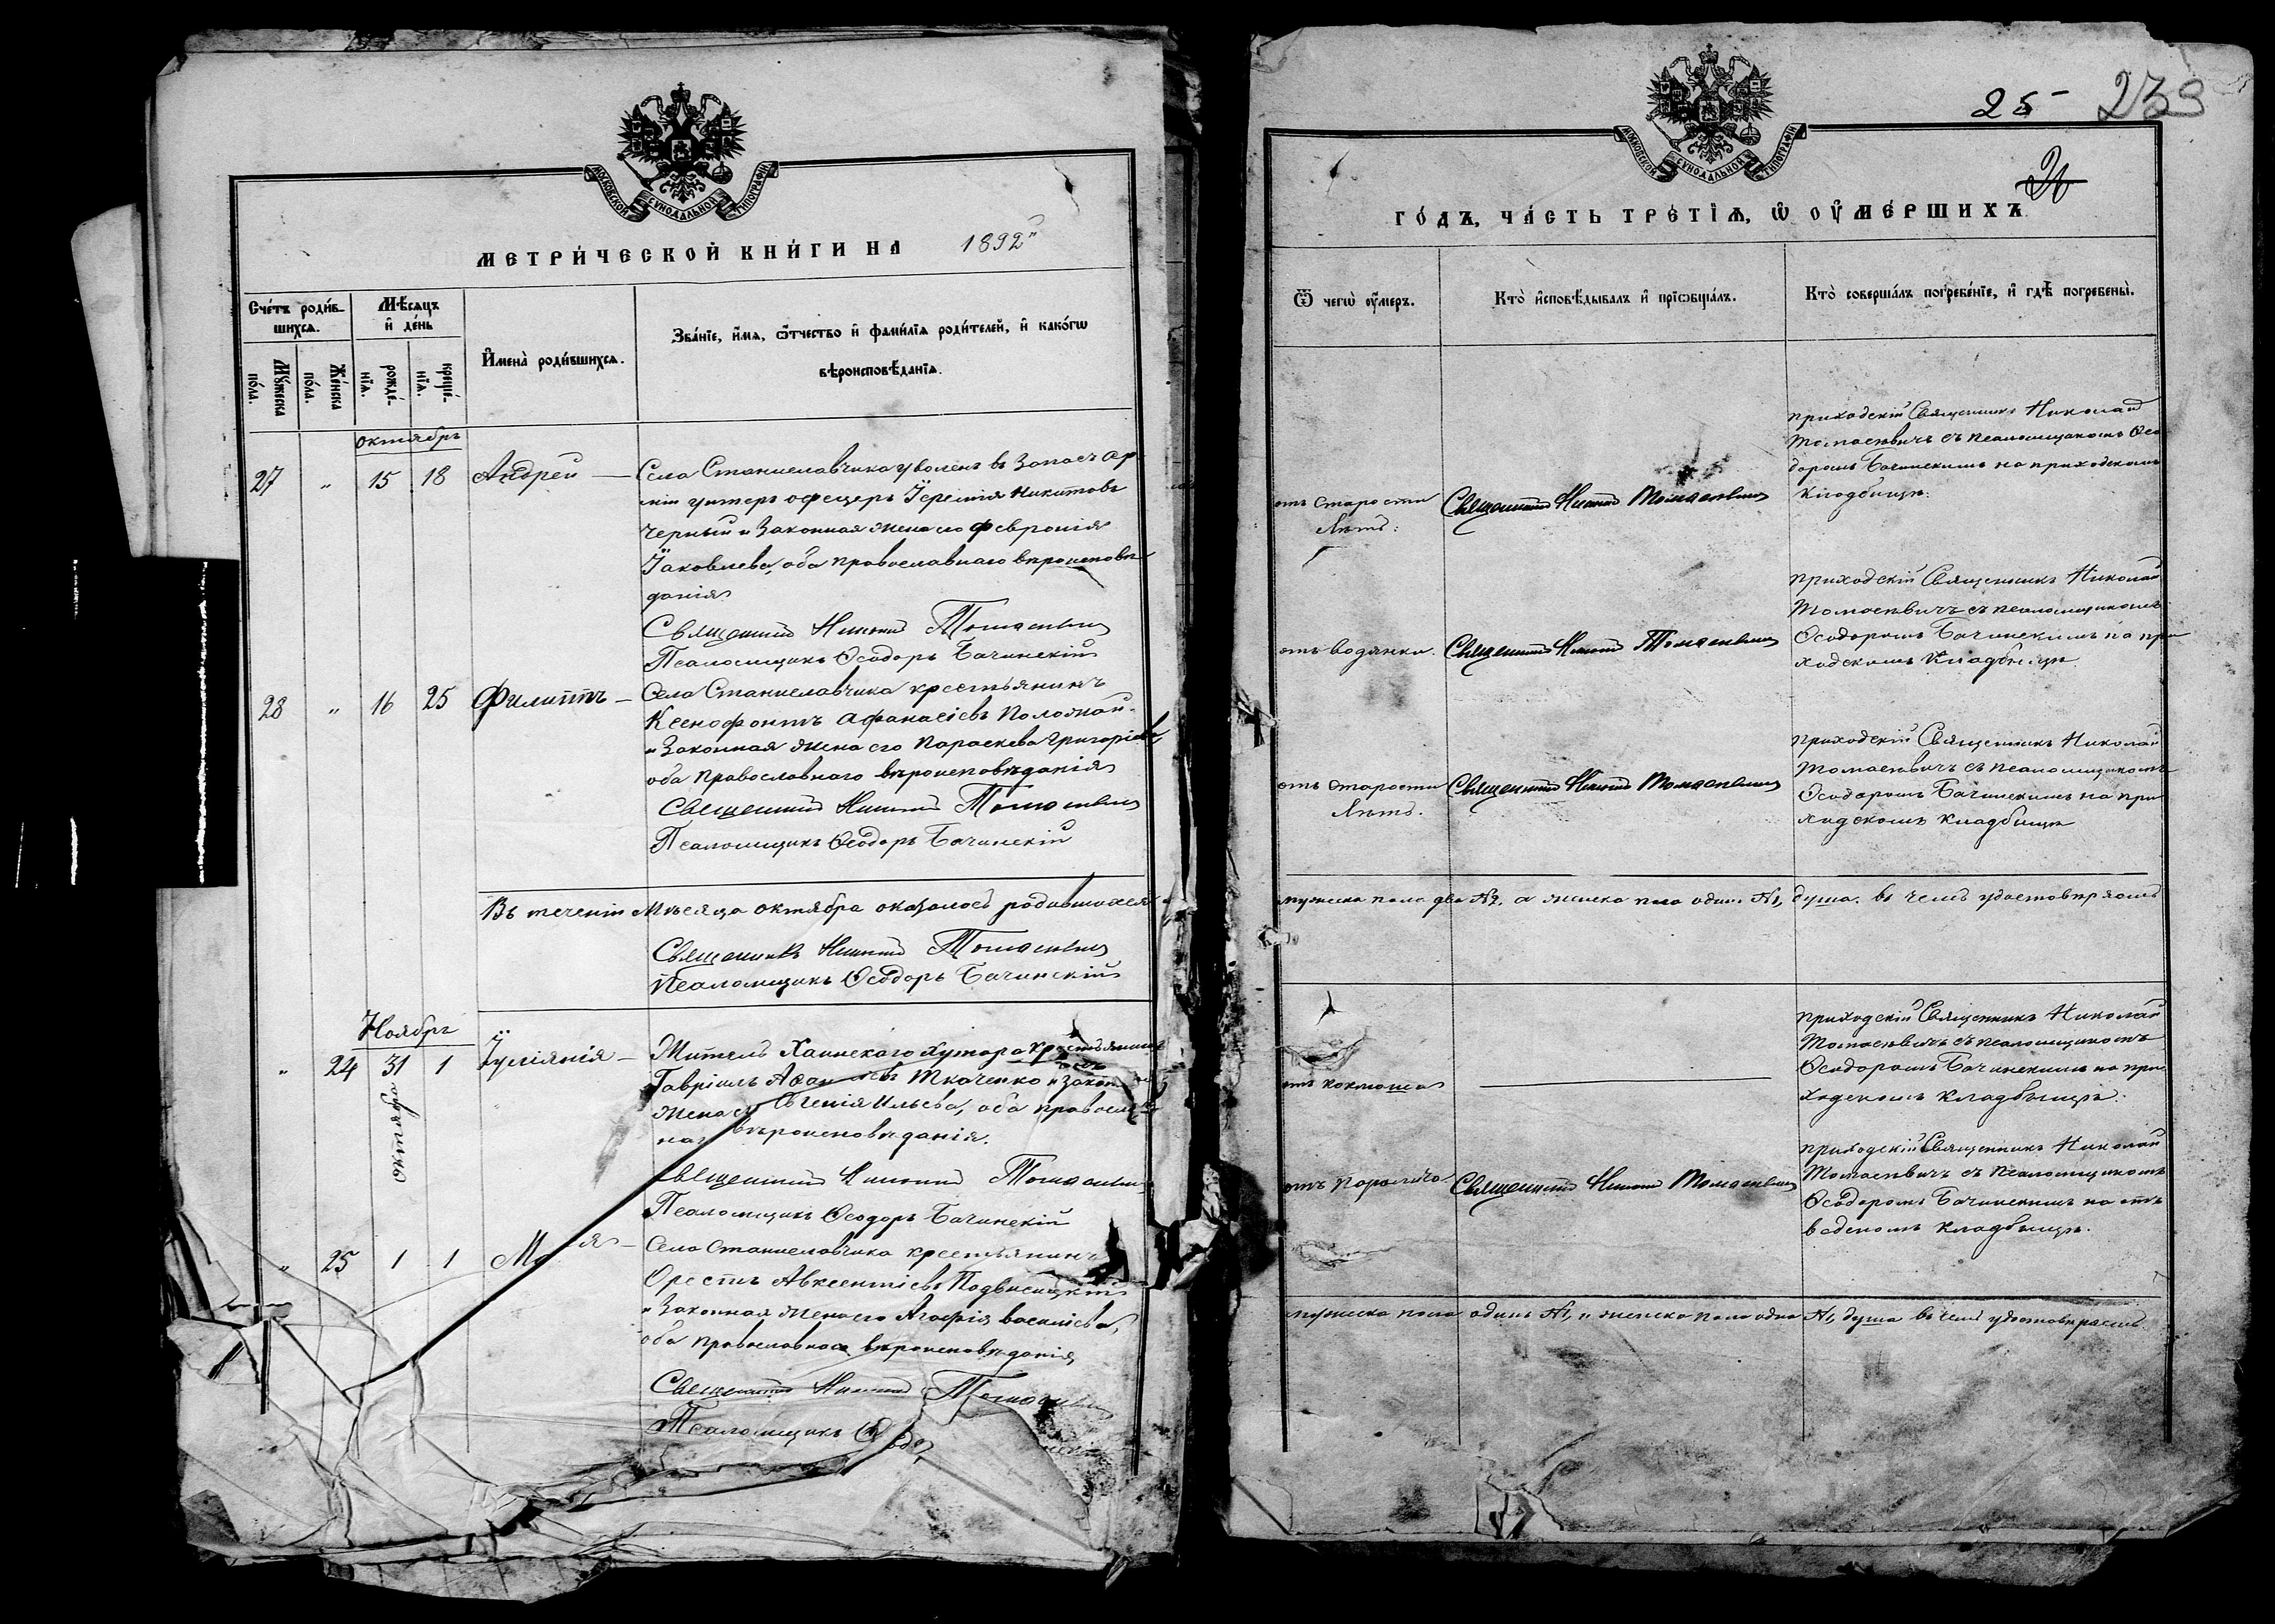 МОСКОВСКОЙ СѴНОДАЛЬНОЙ ТИПОГРАФІИ
МЕТРИ́ЧЕСКОЙ КНИ́ГИ НА 1892й
Сче́тъ роди́в-
шихсѧ.
Мꙋ́жеска
по́ла.
Же́нска
по́ла.
Мѣ́сѧцъ
и҆ де́нь
рожде́-
нїѧ.
креще́-
нїѧ.
И҆мена̀ роди́вшихсѧ.
Зва́нїе, и҆́мѧ, ѻ҆́тчество и҆ фами́лїѧ роди́телей, и҆ како́гѡ
вѣроисповѣ́данїѧ.
октябрь
27 " 15 18 Андрей — Села Станиславчика уволенъ въ Запасъ ар
міи унтеръ офицеръ Іеремія Никитовъ
Черный и Законная жена его Февронія
Іаковлева, оба православнаго вѣроисповѣ
данія
Священникъ Николай Томасевич
Псаломщикъ Ѳеодоръ Бачинскій
28 " 16 25 Филиппъ — Села Станиславчика крестьянинъ
Ксенофонтъ Афанасіевъ
и Законная жена его Параскева Григоріева,
оба православнаго вѣроисповѣданія
Священникъ Николай Томасевич
Псаломщикъ Ѳеодоръ Бачинскій
Въ теченіи Мѣсяца октября оказалось родившихся
Священникъ Николай Томасевич
Псаломщикъ Ѳеодоръ Бачинскій
Ноябрь
" 24 31 1 Іуліянія — Житель Хутора крестьянинъ
октября
Гавріилъ Ткаченко и закон
жена Евгенія Ильева, оба православ
наг вѣроисповѣданія.
Священникъ Николай Томасевич
Псаломщикъ Ѳеодоръ Бачинскій
" 25 1 1 Ма ія — Села Станиславчика крестьянинъ
Орестъ Авксентіевъ Подвисоцкій
и Законная жена его Агафія василіева,
оба православнаго вѣроисповѣданія
Священникъ Николай Томасевич
Псаломщикъ
25 239
26
МОСКОВСКОЙ СѴНОДАЛЬНОЙ ТИПОГРАФІИ
ГО́ДЪ, ЧА́СТЬ ТРЕ́ТЇѦ, Ѡ҆ ОУ҆МЕ́РШИХЪ.
Ѿ чегѡ̀ ᲂу҆́меръ.
Кто̀ и҆сповѣ́дывалъ и҆ прїѡбща́лъ.
Кто̀ соверша́лъ погребе́нїе, и҆ гдѣ̀ погребены̀.
отъ старости
Лѣтъ.
Священникъ Николай Томасевич
приходскій Священникъ Николай
Томасевичъ съ псаломщикомъ Ѳео
доромъ Бачинскимъ на приходскомъ
кладбищѣ.
отъ водянки.
Священникъ Николай Томасевич
приходскій Священникъ Николай
Томасевичъ съ псаломщикомъ
Ѳеодоромъ Бачинскимъ на при
ходскомъ кладбищѣ.
отъ старости
Лѣтъ.
Священникъ Николай Томасевич
приходскій Священникъ Николай
Томасевичъ съ псаломщикомъ
Ѳеодоромъ Бачинскимъ на при
ходскомъ кладбищѣ
мужеска пола два №2, а женска пола одна №1, душа. въ чемъ удостовѣряемъ
отъ коклюша
приходскій Священникъ Николай
Томасевичъ съ псаломщикомъ
Ѳеодоромъ Бачинскимъ на при
ходскомъ кладбищѣ.
отъ Паралича
Священникъ Николай Томасевич
приходскій Священникъ Николай
Томасевичъ съ Псаломщикомъ
Ѳеодоромъ Бачинскимъ на отъ
водскомъ кладбищѣ.
мужеска пола одинъ №1, и женска пола одна №1, душа въ чемъ удостовѣряемъ.